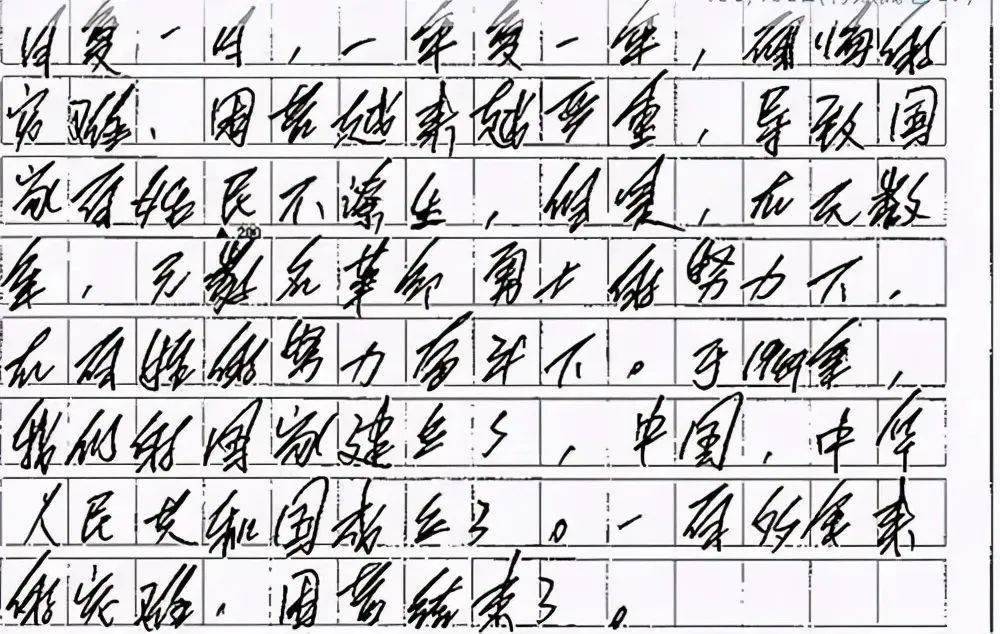 日复一日，一年复一年，百姓的
灾难、困苦越来越严重，导致国
家百姓民不潦生，但是，在无数
200
年，无数名革命勇士的努力下，
在百姓的努力奋斗下。于1949年，
我们的国家建立了，中国，中华
人民共和国成立了。一百多年来
的灾难、困苦结束了。